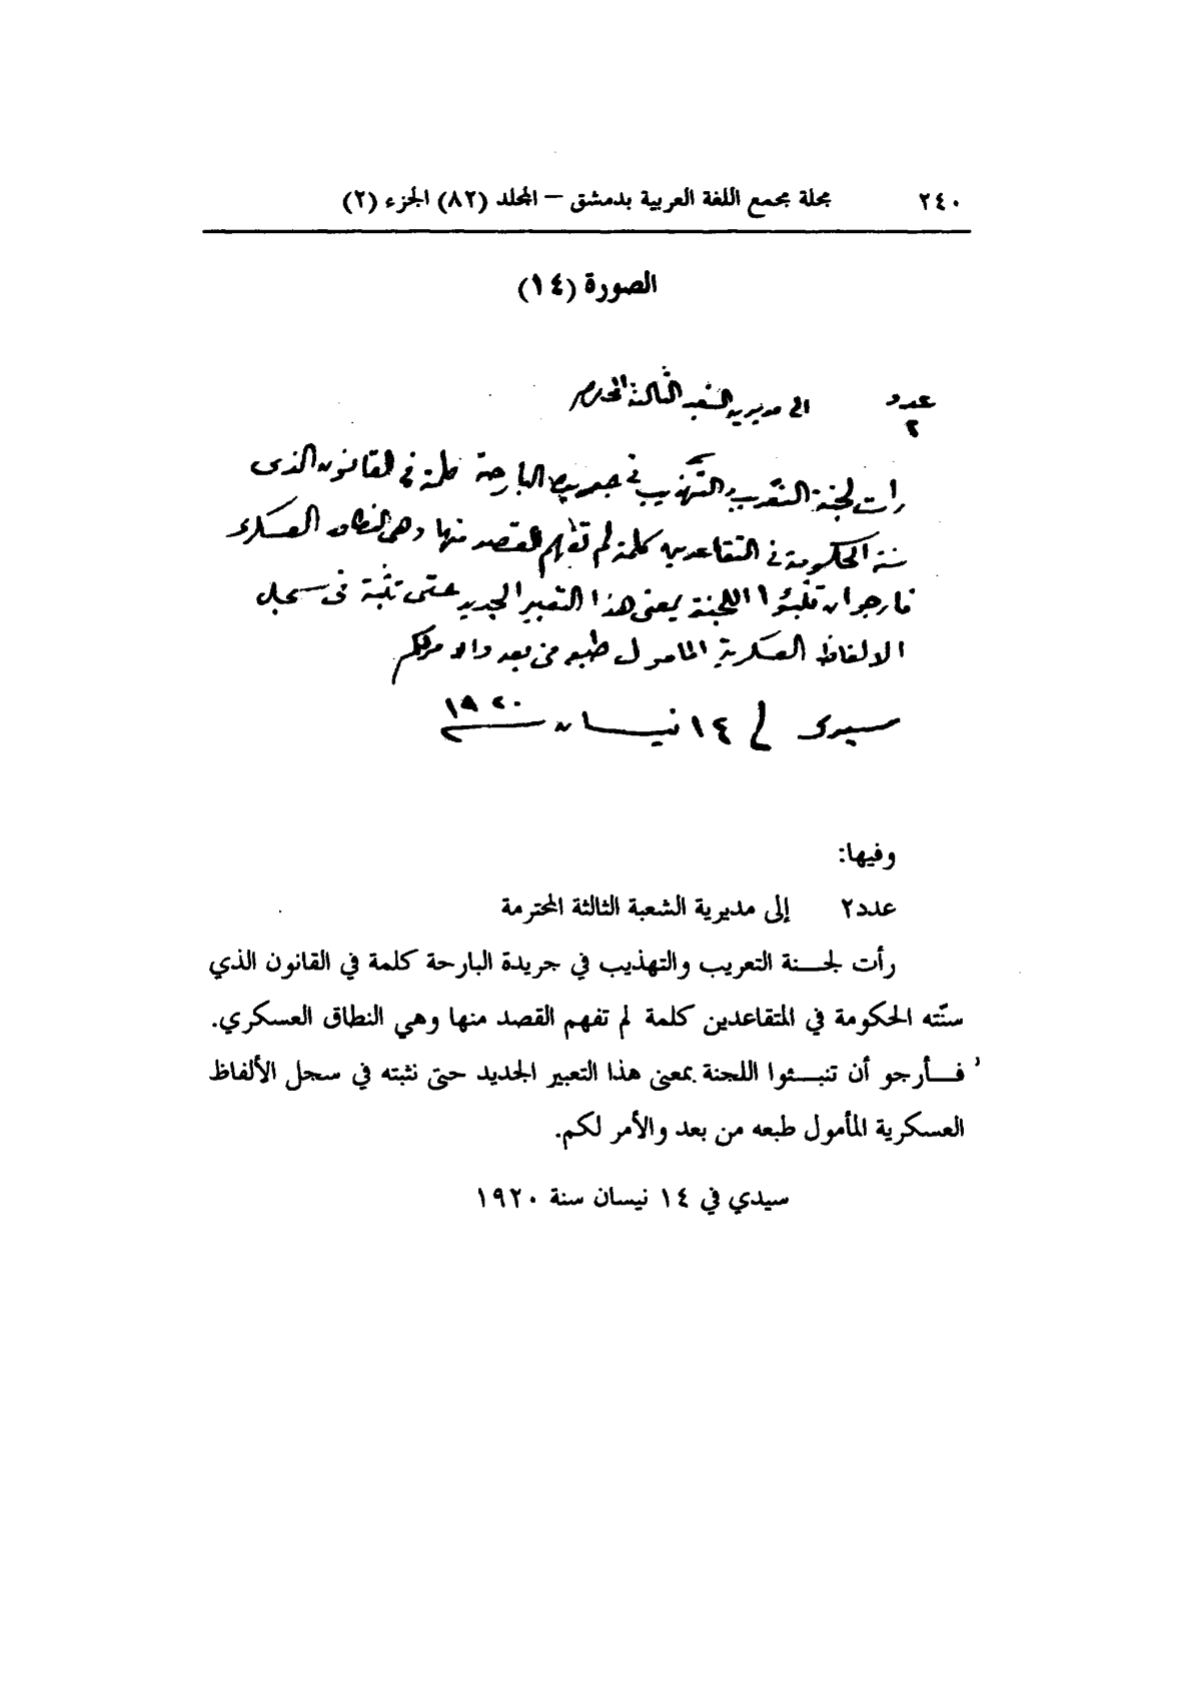 ٢٤٠ مجلة مجمع اللغة العربية بدمشق – المجلد (٨٢) الجزء (٢)
الصورة (١٤)
عدد ٢ الى مديرية الشعبة الثالثة المحترمة
رات لجنة التعريب والتهذيب في جريدة البارحة كلمة في القانون الذى
سنته الحكومة في المتقاعدين كلمة لم تفهم القصد منها وهى النطاق العسكرى
فارجو ان تنبئوا اللجنة بمعنى هذا التعبير الجديد حتى نثبته فى سجل
الالفاظ العسكرية المامول طبعه من بعد والامر لكم
سيدى في ١٤ نيسان سنة ١٩٢٠
وفيها:
عدد٢ إلى مديرية الشعبة الثالثة المحترمة
رأت لجــنة التعريب والتهذيب في جريدة البارحة كلمة في القانون الذي
سنّته الحكومة في المتقاعدين كلمة لم تفهم القصد منها وهي النطاق العسكري.
فــأرجو أن تنبــئوا اللجنة بمعنى هذا التعبير الجديد حتى نثبته في سجل الألفاظ
العسكرية المأمول طبعه من بعد والأمر لكم.
سيدي في ١٤ نيسان سنة ١٩٢٠